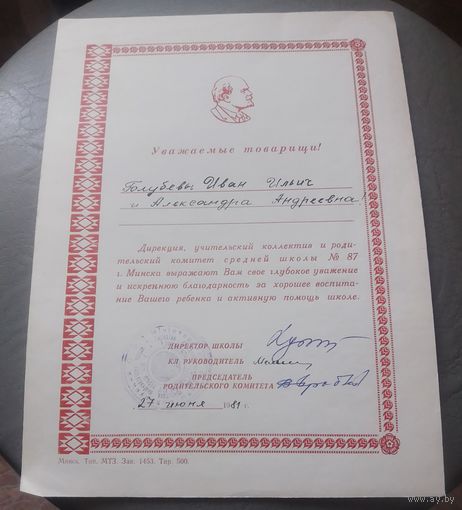 Уважаемые товарищи!
Голубевы Иван Ильич
и Александра Андреевна!
Дирекция, учительский коллектив и роди-
тельский комитет средней школы № 87
г. Минска выражают Вам свое глубокое уважение
и искреннюю благодарность за хорошее воспита-
ние Вашего ребенка и активную помощь школе.
ДИРЕКТОР ШКОЛЫ
КЛ РУКОВОДИТЕЛЬ
ПРЕДСЕДАТЕЛЬ
РОДИТЕЛЬСКОГО КОМИТЕТА
27 июня 1981 г.
Минск. Тип. МТЗ. Зак. 1453. Тир. 500.
www.ay.by